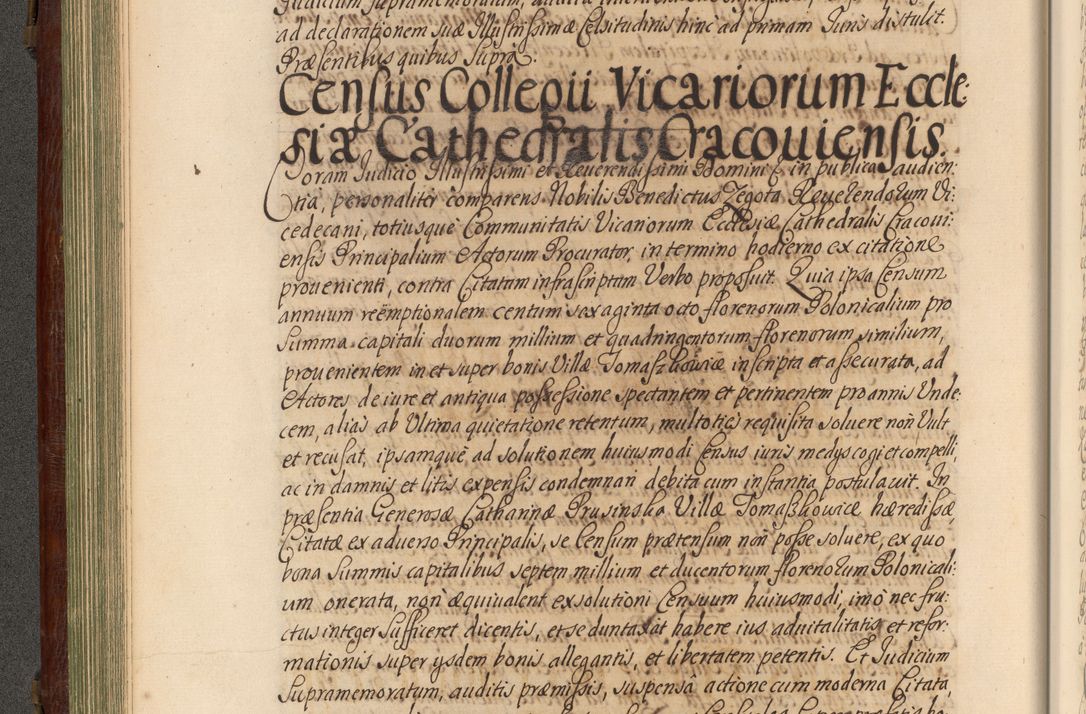 Judicium supramemoratum, auditis
ad declarationem suæ Illustrissimæ Celsitudinis hinc ad primam Juris distulit.
Præsentibus quibus supra.
Census Collegii Vicariorum Eccle:
siæ Cathedralis Cracouiensis.
Coram Judicio Illustrissimi et Reuerendissimi Domini E in publica audien:
tia, personaliter comparens Nobilis Benedictus Zegota Reuerendorum Vi:
cedecani, totiusque Communitatis Vicariorum Ecclesiæ Cathedralis Cracoui:
ensis Principalium Actorum Procurator, in termino hodierno ex citatione
prouenienti, contra Citatam infrascriptam Verbo proposuit. Quia ipsa Censum
annuum reëmptionalem centum sexaginta octo florenorum Polonicalium pro
summa capitali duorum millium et quadringentorum florenorum similium,
prouenientem in et super bonis Villæ Tomaszkowice inscripta et assecurata, ad
Actores de iure et antiqua possessione spectantem et pertinentem pro annis Unde:
cem, alias ab Ultima quietatione retentum, multoties requisita soluere non Vult
et recusat, ipsamque ad solutionem huiusmodi Census iuris medys cogi et compelli,
ac in damnis et litis expensis condemnari debita cum instantia postulauit. In
præsentia Generosæ Catharinæ Prusinska Villæ Tomaszkowice hæredissæ,
Citatæ ex aduerso Principalis, se Censum prætensum non posse soluere, ex quo
bona summis capitalibus septem millium et ducentorum florenorum Polonicali:
um onerata, non æquiualent exsolutioni Censuum huiusmodi, imo nec fru:
ctus integer sufficeret dicentis, et se duntaxat habere ius aduitalitatis et refor:
mationis super ysdem bonis allegantis, et libertatem petentis. Et Judicium
supramemoratum, auditis præmissis, suspensa actione cum moderna Citata,